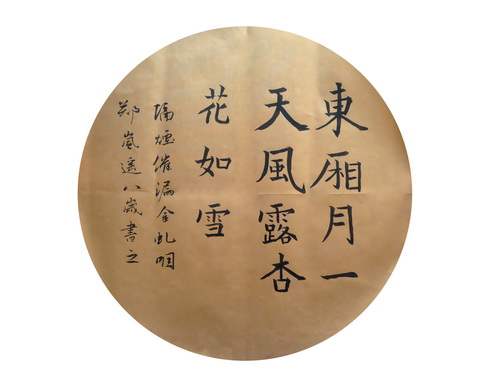 東厢月一
天風露杏
花如雪
隔煙催漏金虬咽
郑嵐遥八歲書之